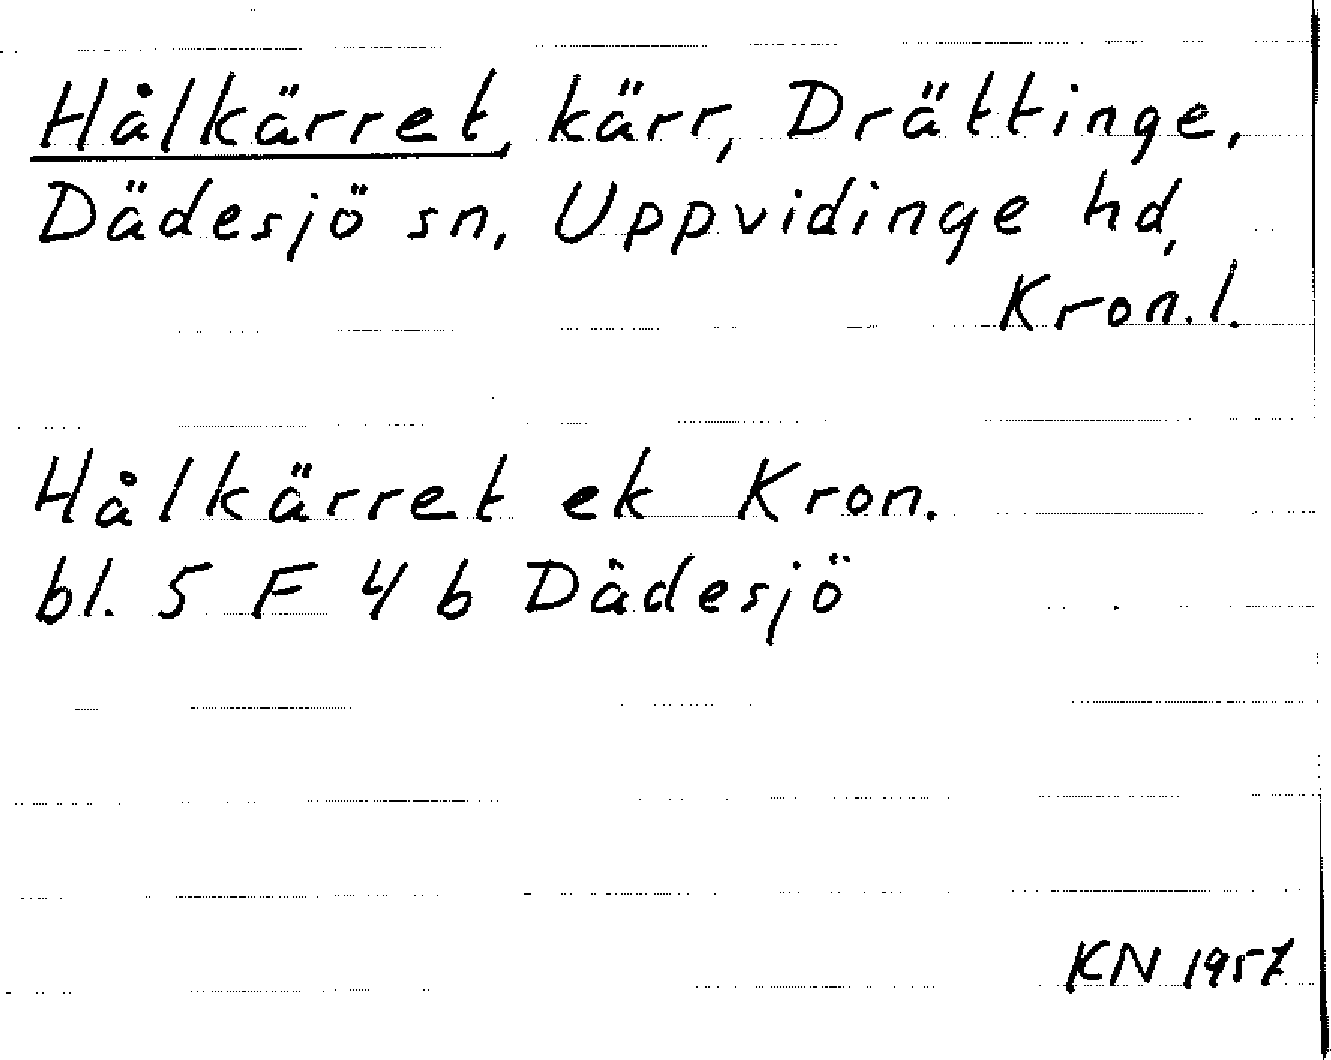 Hålkärret, kärr, Drättinge,
Dädesjö sn, Uppvidinge hd,
Kron.l.
Hålkärret ek Kron.
bl. 5 F 4 b Dädesjö
KN 1957